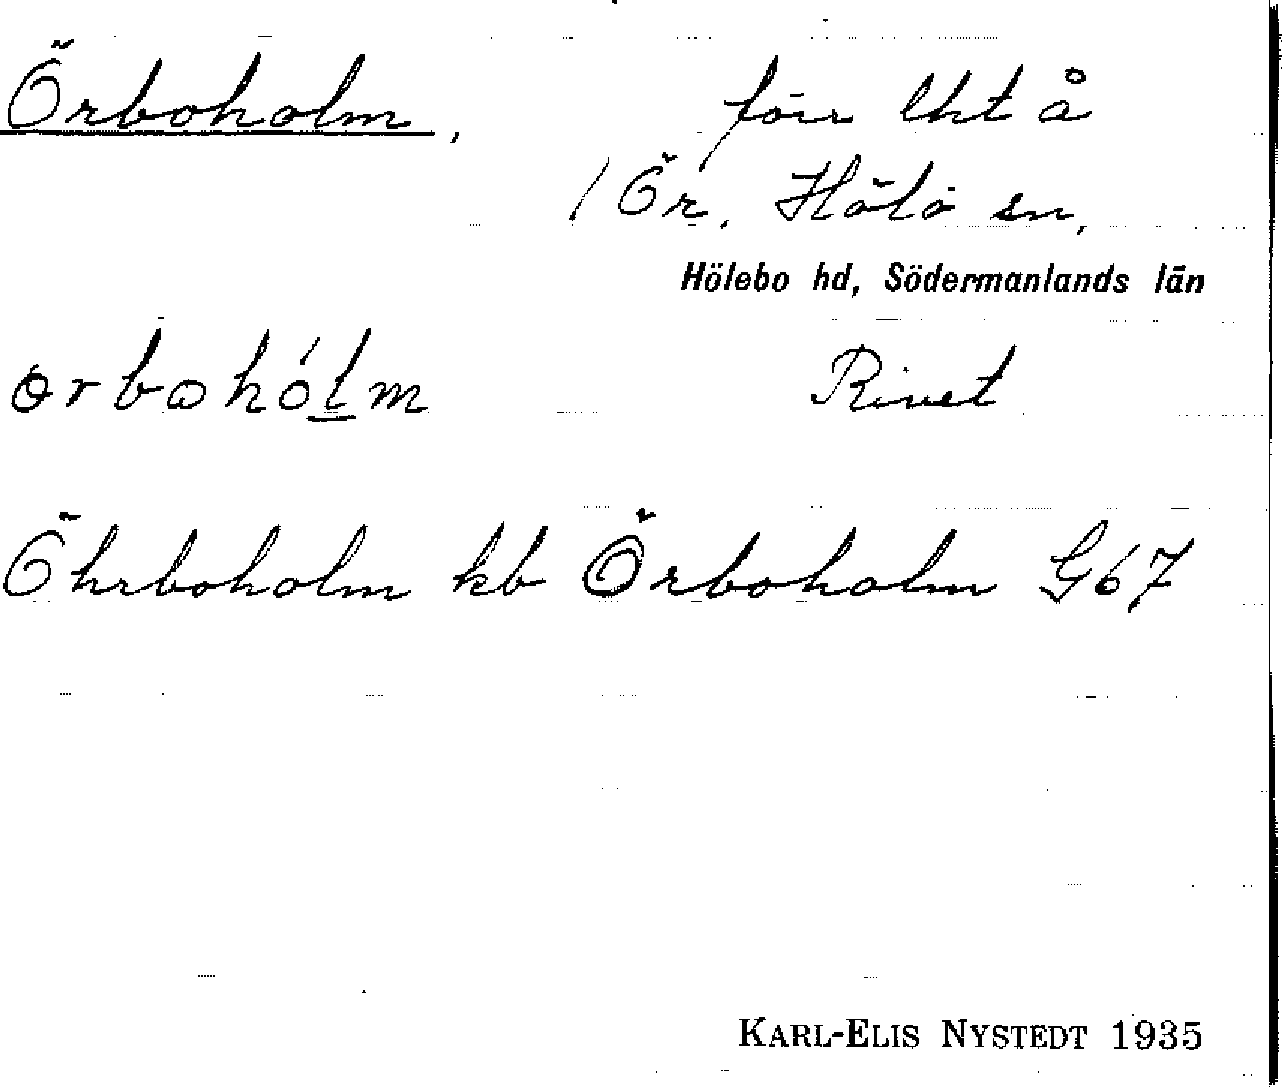 Örboholm, förr lht å
/ Ör, Hölö sn,
Hölebo hd, Södermanlands län
ɵrbωhól̲m Rivet
Öhrboholm kb Örboholm G67
KARL-ELIS NYSTEDT 1935